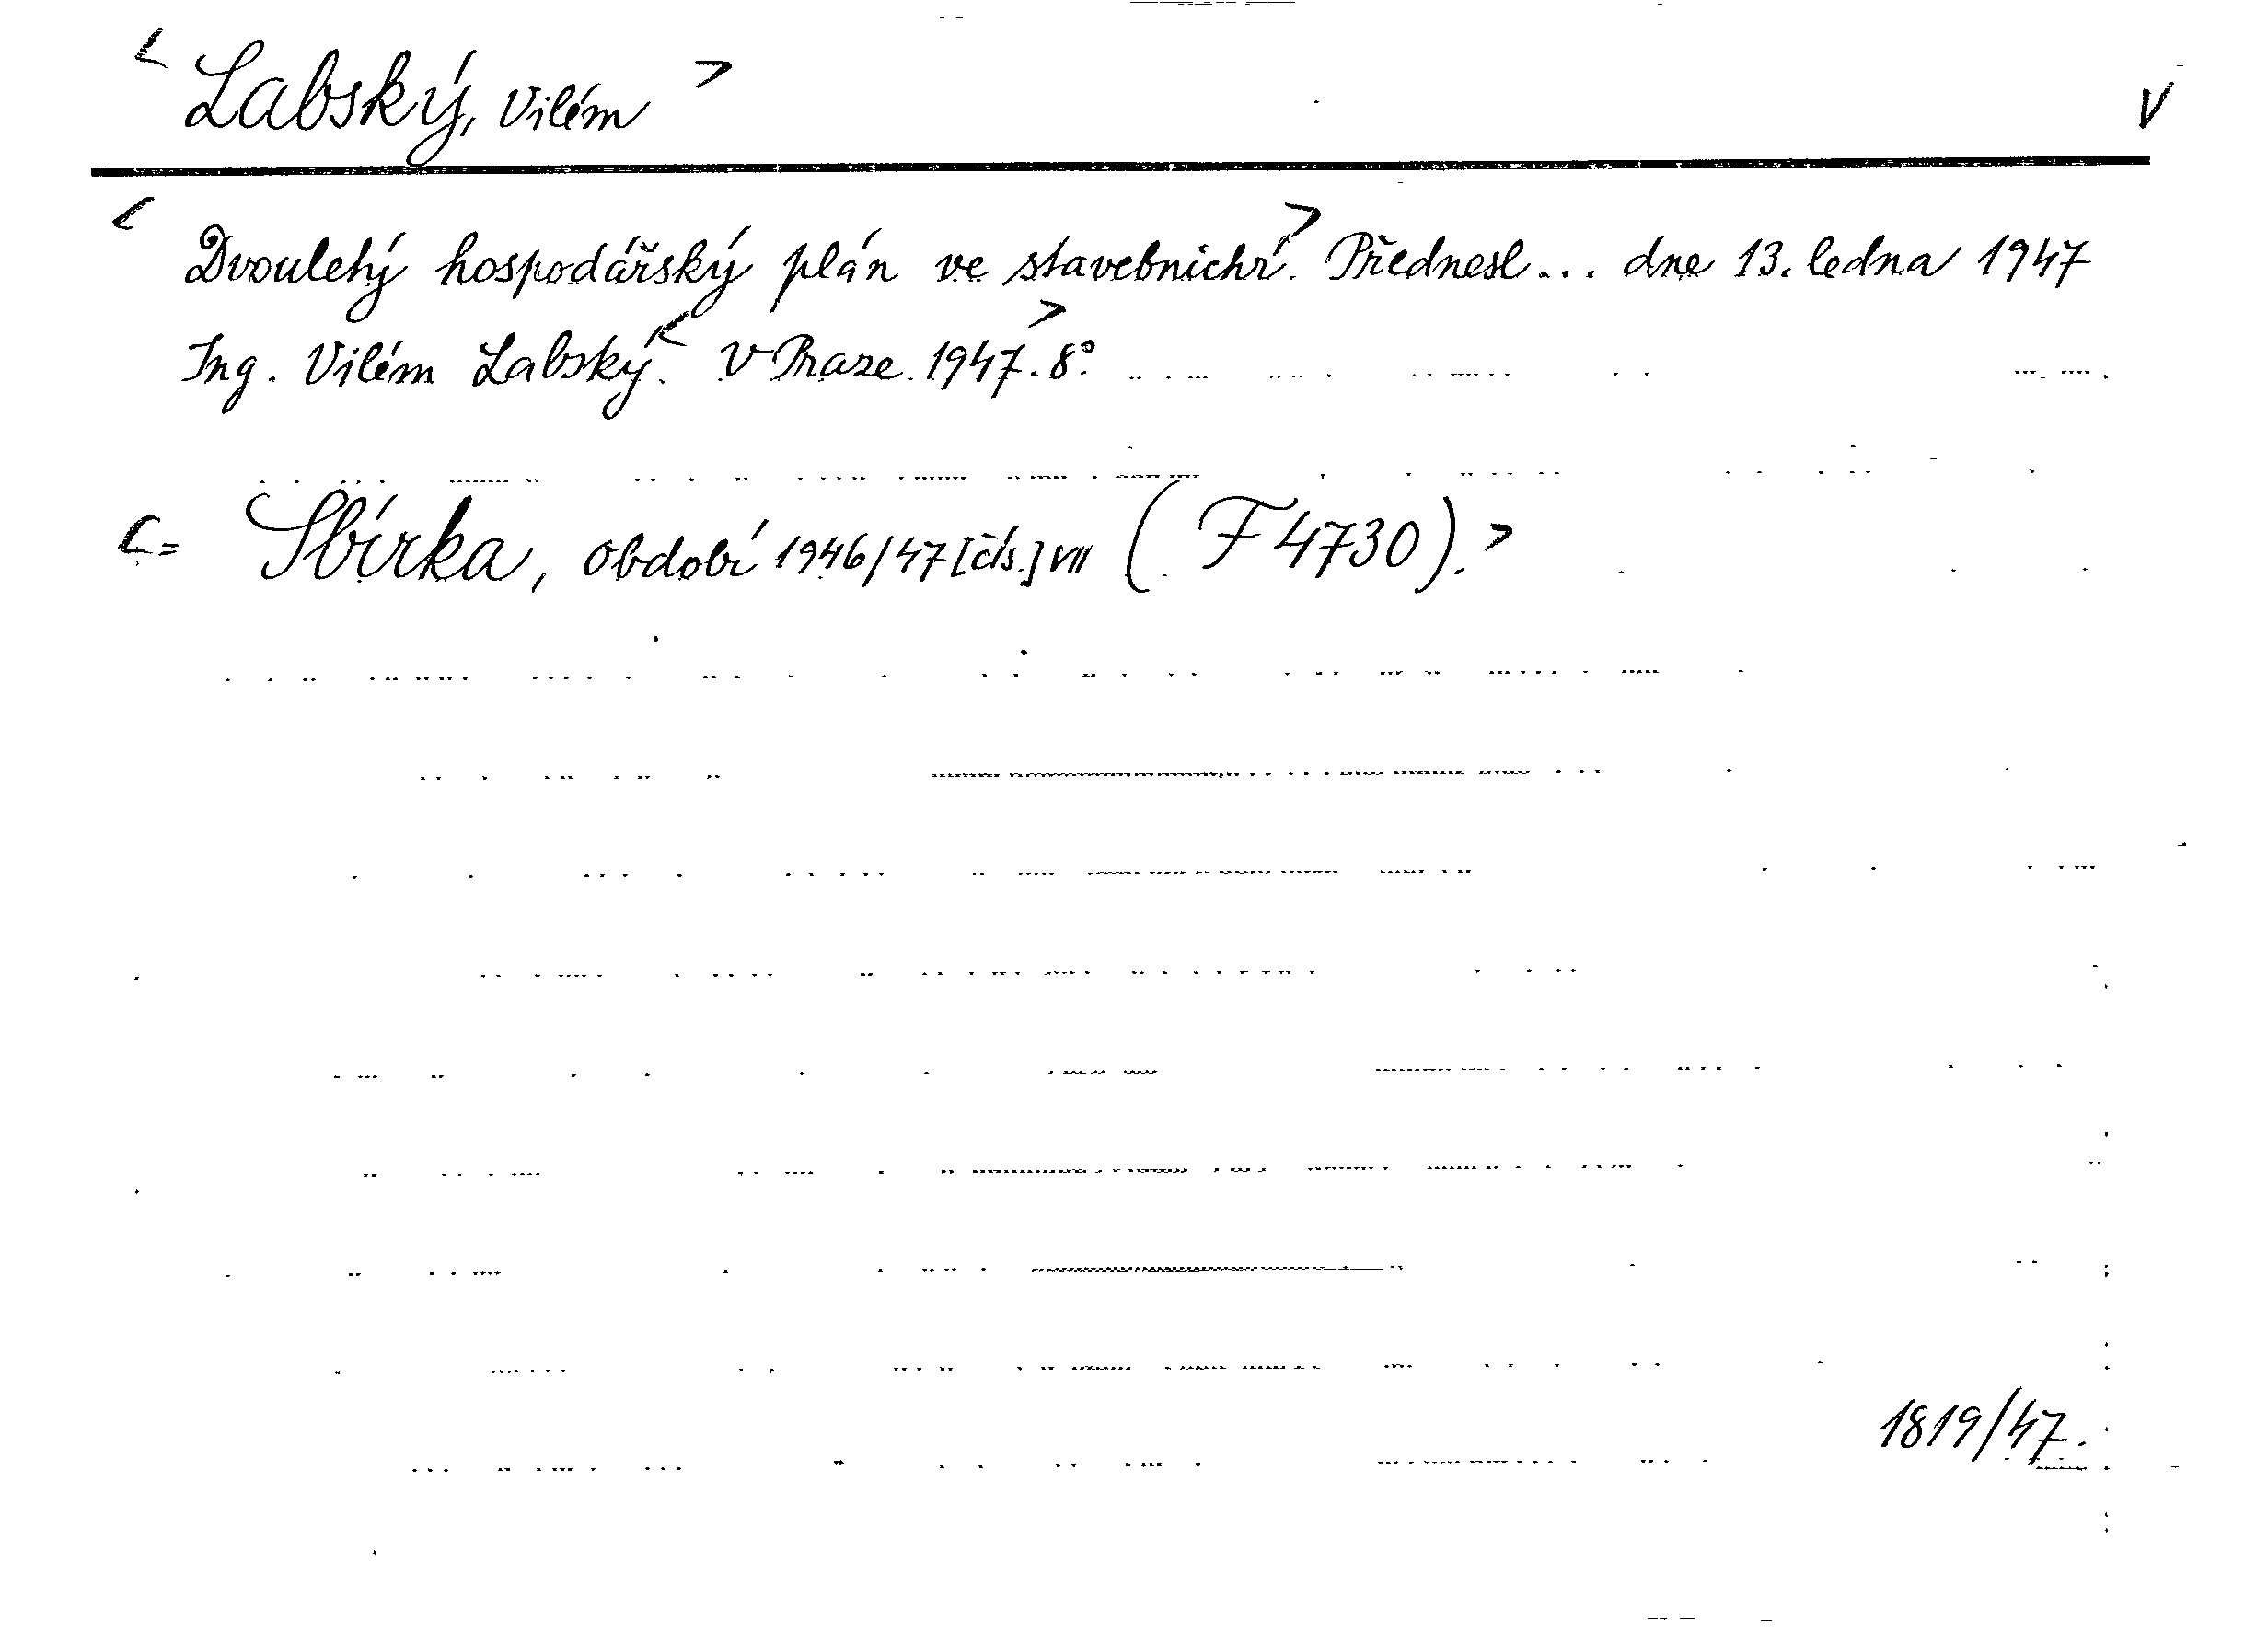 < Labský, Vilém > V
< Dvouletý hospodářský plán ve stavebnictví. > Přednesl... dne 13. ledna 1947
Ing. Vilém Labský. < V Praze. 1947. > 8°.
< = Sbírka, období 1946/47 [čís.] VII ( F 4730). >
1819/47.